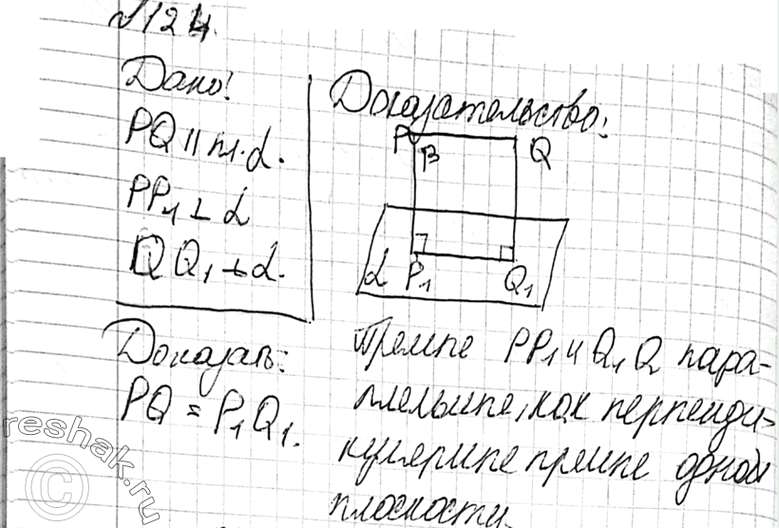 №124.
Дано:
PQ || пл. α.
PP₁ ⊥ α
QQ₁ ⊥ α.
Доказать:
PQ = P₁Q₁.
Доказательство:
P B Q
α P₁ Q₁
Прямые PP₁ и Q₁Q пара-
лельные, как перпенди-
кулярные прямые одной
плоскости.
reshak.ru